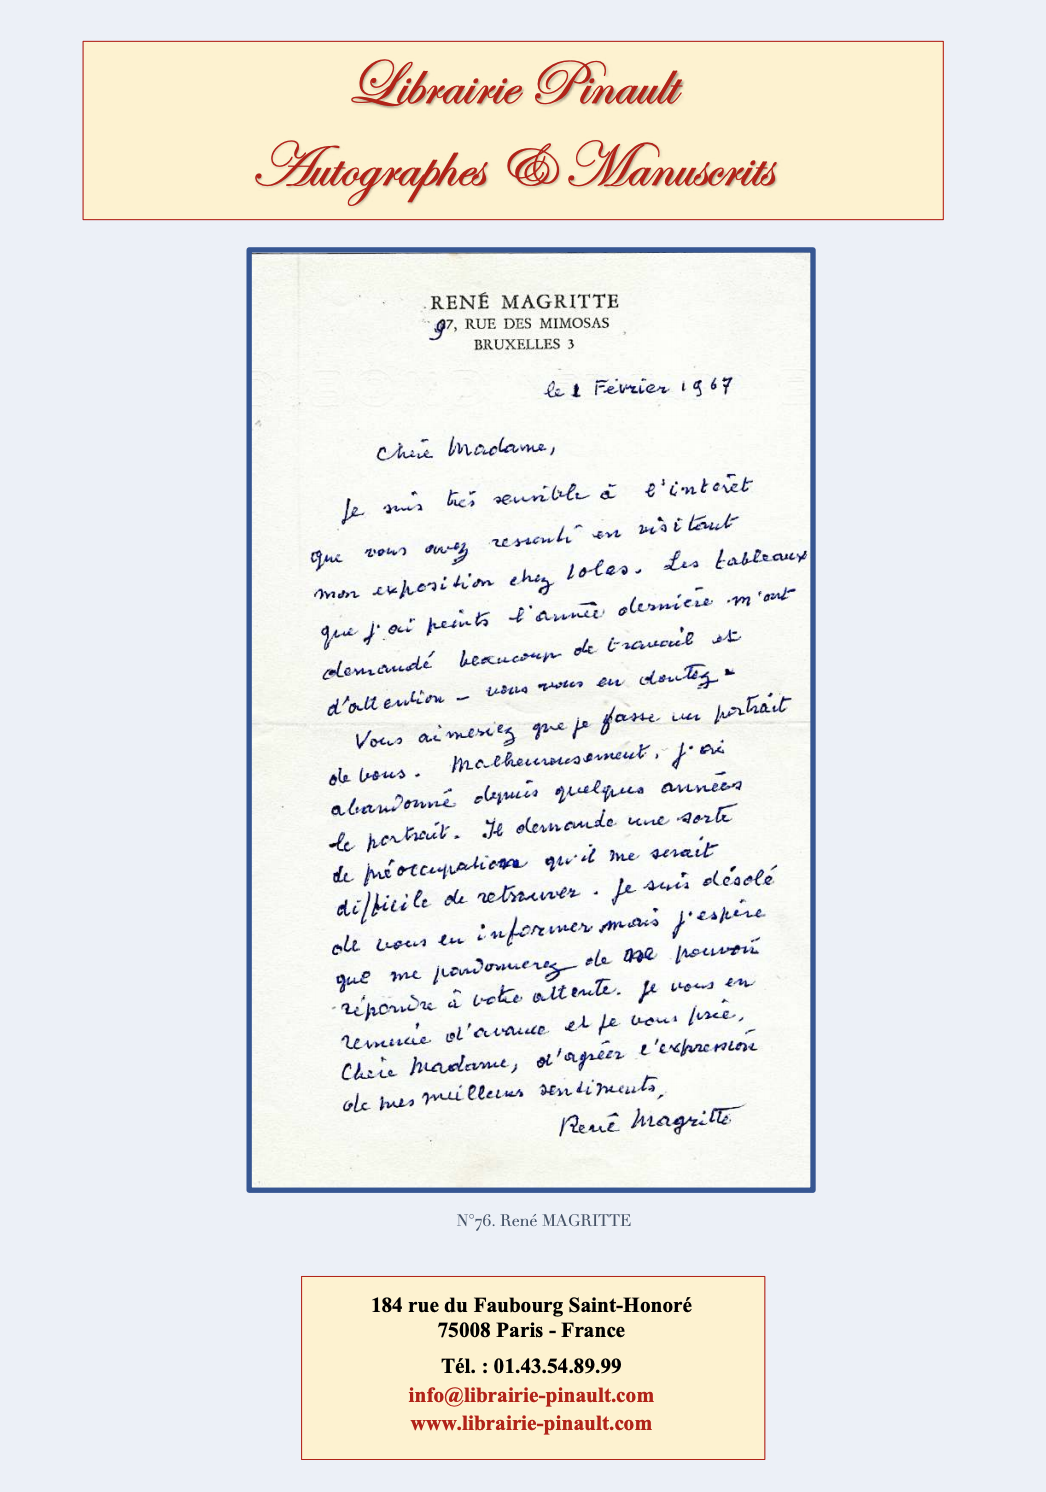 Librairie Pinault
Autographes & Manuscrits
RENÉ MAGRITTE
97, RUE DES MIMOSAS
BRUXELLES 3
le 1 Février 1967
Chère Madame,
Je suis très sensible à l'intérêt
que vous avez ressenti en visitant
mon exposition chez Iolas. Les tableaux
que j'ai peints l'année dernière m'ont
demandé beaucoup de travail et
d'attention – vous vous en doutez.
Vous aimeriez que je fasse un portrait
de vous. Malheureusement, j'ai
abandonné depuis quelques années
le portrait. Il demande une sorte
de préoccupation qu'il me serait
difficile de retrouver. Je suis désolé
de vous en informer mais j'espère
que me pardonnerez de ne pouvoir
répondre à votre attente. Je vous en
remercie d'avance et je vous prie,
Chère Madame, d'agréer l'expression
de mes meilleurs sentiments,
René Magritte
N°76. René MAGRITTE
184 rue du Faubourg Saint-Honoré
75008 Paris - France
Tél. : 01.43.54.89.99
info@librairie-pinault.com
www.librairie-pinault.com